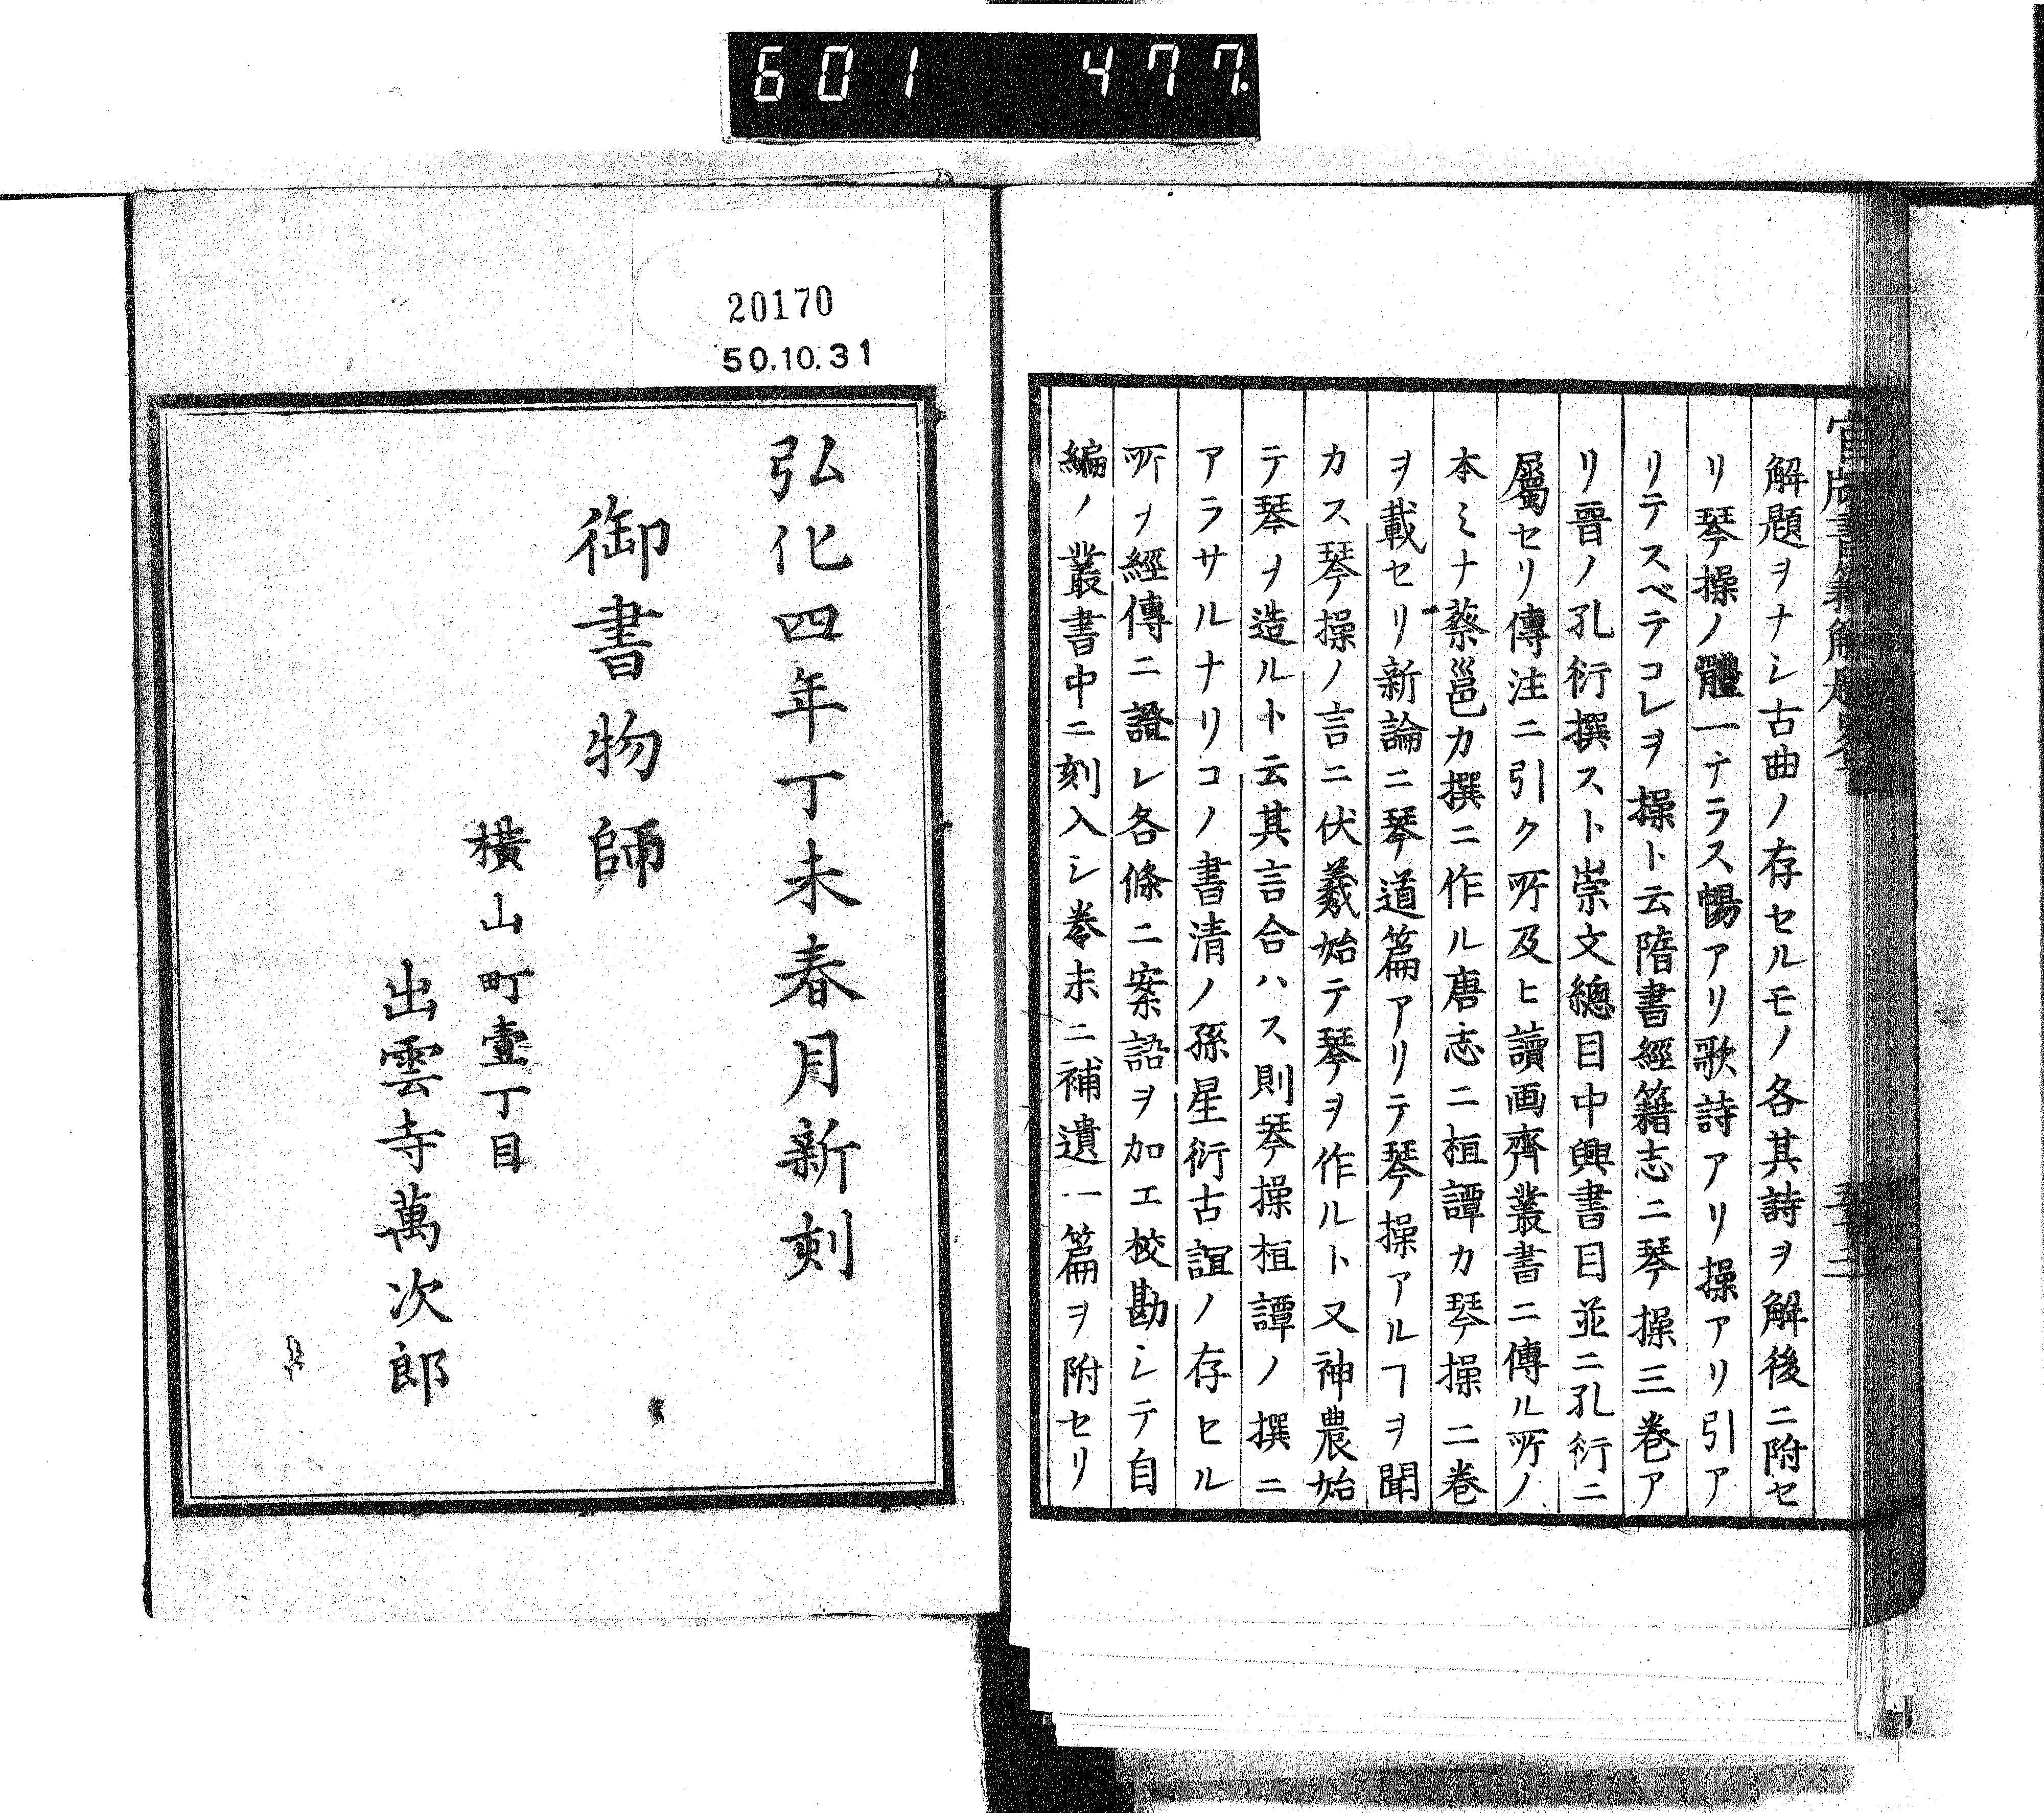 601 477
官版書籍解題畧
解題ヲナシ古曲ノ存セルモノ各其詩ヲ解後ニ附セ
リ琴操ノ體一ナラス暢アリ歌詩アリ操アリ引ア
リテスベテコレヲ操ト云隋書經籍志ニ琴操三巻ア
リ晉ノ孔衍撰スト崇文總目中興書目並ニ孔衍ニ
屬セリ傳注ニ引ク所及ヒ讀画齊叢書ニ傳ル所ノ
本ミナ蔡邕カ撰ニ作ル唐志ニ桓譚カ琴操二巻
ヲ載セリ新論ニ琴道篇アリテ琴操アルヿヲ聞
カス琴操ノ言ニ伏羲始テ琴ヲ作ルト又神農始
テ琴ヲ造ルト云其言合ハス則琴操桓譚ノ撰ニ
アラサルナリコノ書清ノ孫星衍古誼ノ存セル
所ヲ經傳ニ證レ各條ニ案語ヲ加エ校勘シテ自
編ノ叢書中ニ刻入シ巻末ニ補遺一篇ヲ附セリ
20170
50.10.31
弘化四年丁未春月新刻
御書物師
横山町壹丁目
出雲寺萬次郎